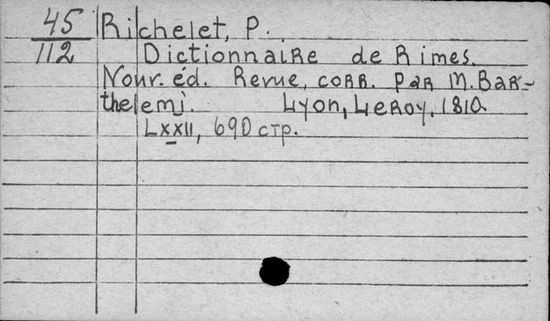 45 Richelet, P.
112 Dictionnaire de Rimes.
Nouv. éd. Revue, corr. par M. Bar-
thelemj. Lyon, Leroy, 1810.
LXXII, 690 стр.